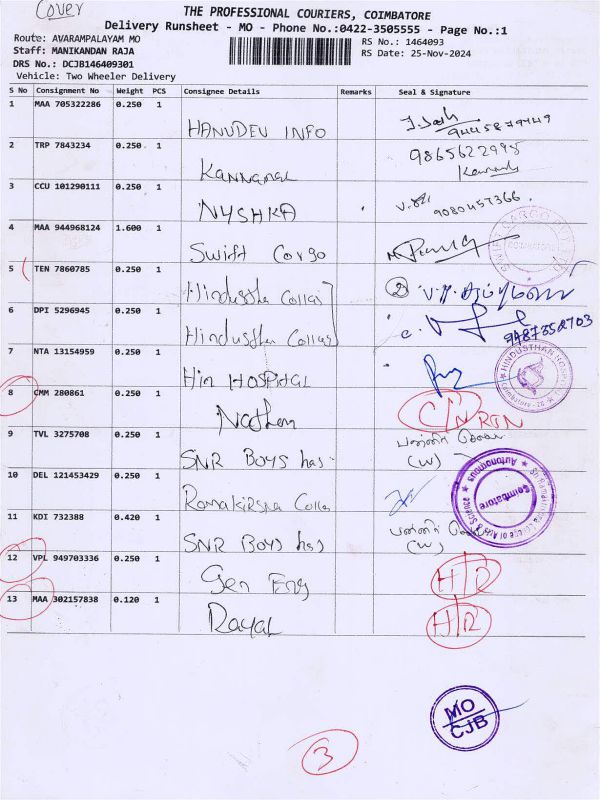 Cover
THE PROFESSIONAL COURIERS, COIMBATORE
Delivery Runsheet - MO - Phone No.:0422-3505555 - Page No.:1
Route: AVARAMPALAYAM MO
RS No.: 1464093
Staff: MANIKANDAN RAJA
RS Date: 25-Nov-2024
DRS No.: DCJB146409301
Vehicle: Two Wheeler Delivery
S No Consignment No Weight PCS Consignee Details Remarks Seal & Signature
1 MAA 705322286 0.250 1 HANUDEV INFO
2 TRP 7843234 0.250 1 Kannamal 9865622995
3 CCU 101290111 0.250 1 NYSHKA 9080457366
4 MAA 944968124 1.600 1 Swift Corgo
5 TEN 7860785 0.250 1 Hindustha Collas
6 DPI 5296945 0.250 1 Hindustha Collas
7 NTA 13154959 0.250 1 Hin HOSPITAL
8 CMM 280861 0.250 1 Nathan
9 TVL 3275708 0.250 1 SNR BOYS has (W)
10 DEL 121453429 0.250 1 Ramakirsna Colla
11 KDI 732388 0.420 1 SNR Boys has (W)
12 VPL 949703336 0.250 1 Gen Eng H/R
13 MAA 302157838 0.120 1 Rayal H/R
MO
CJB
3